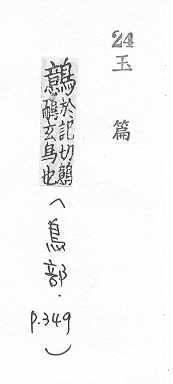 24
玉篇
鷾於記切鷾鴯玄鳥也(鳥部.p.349)